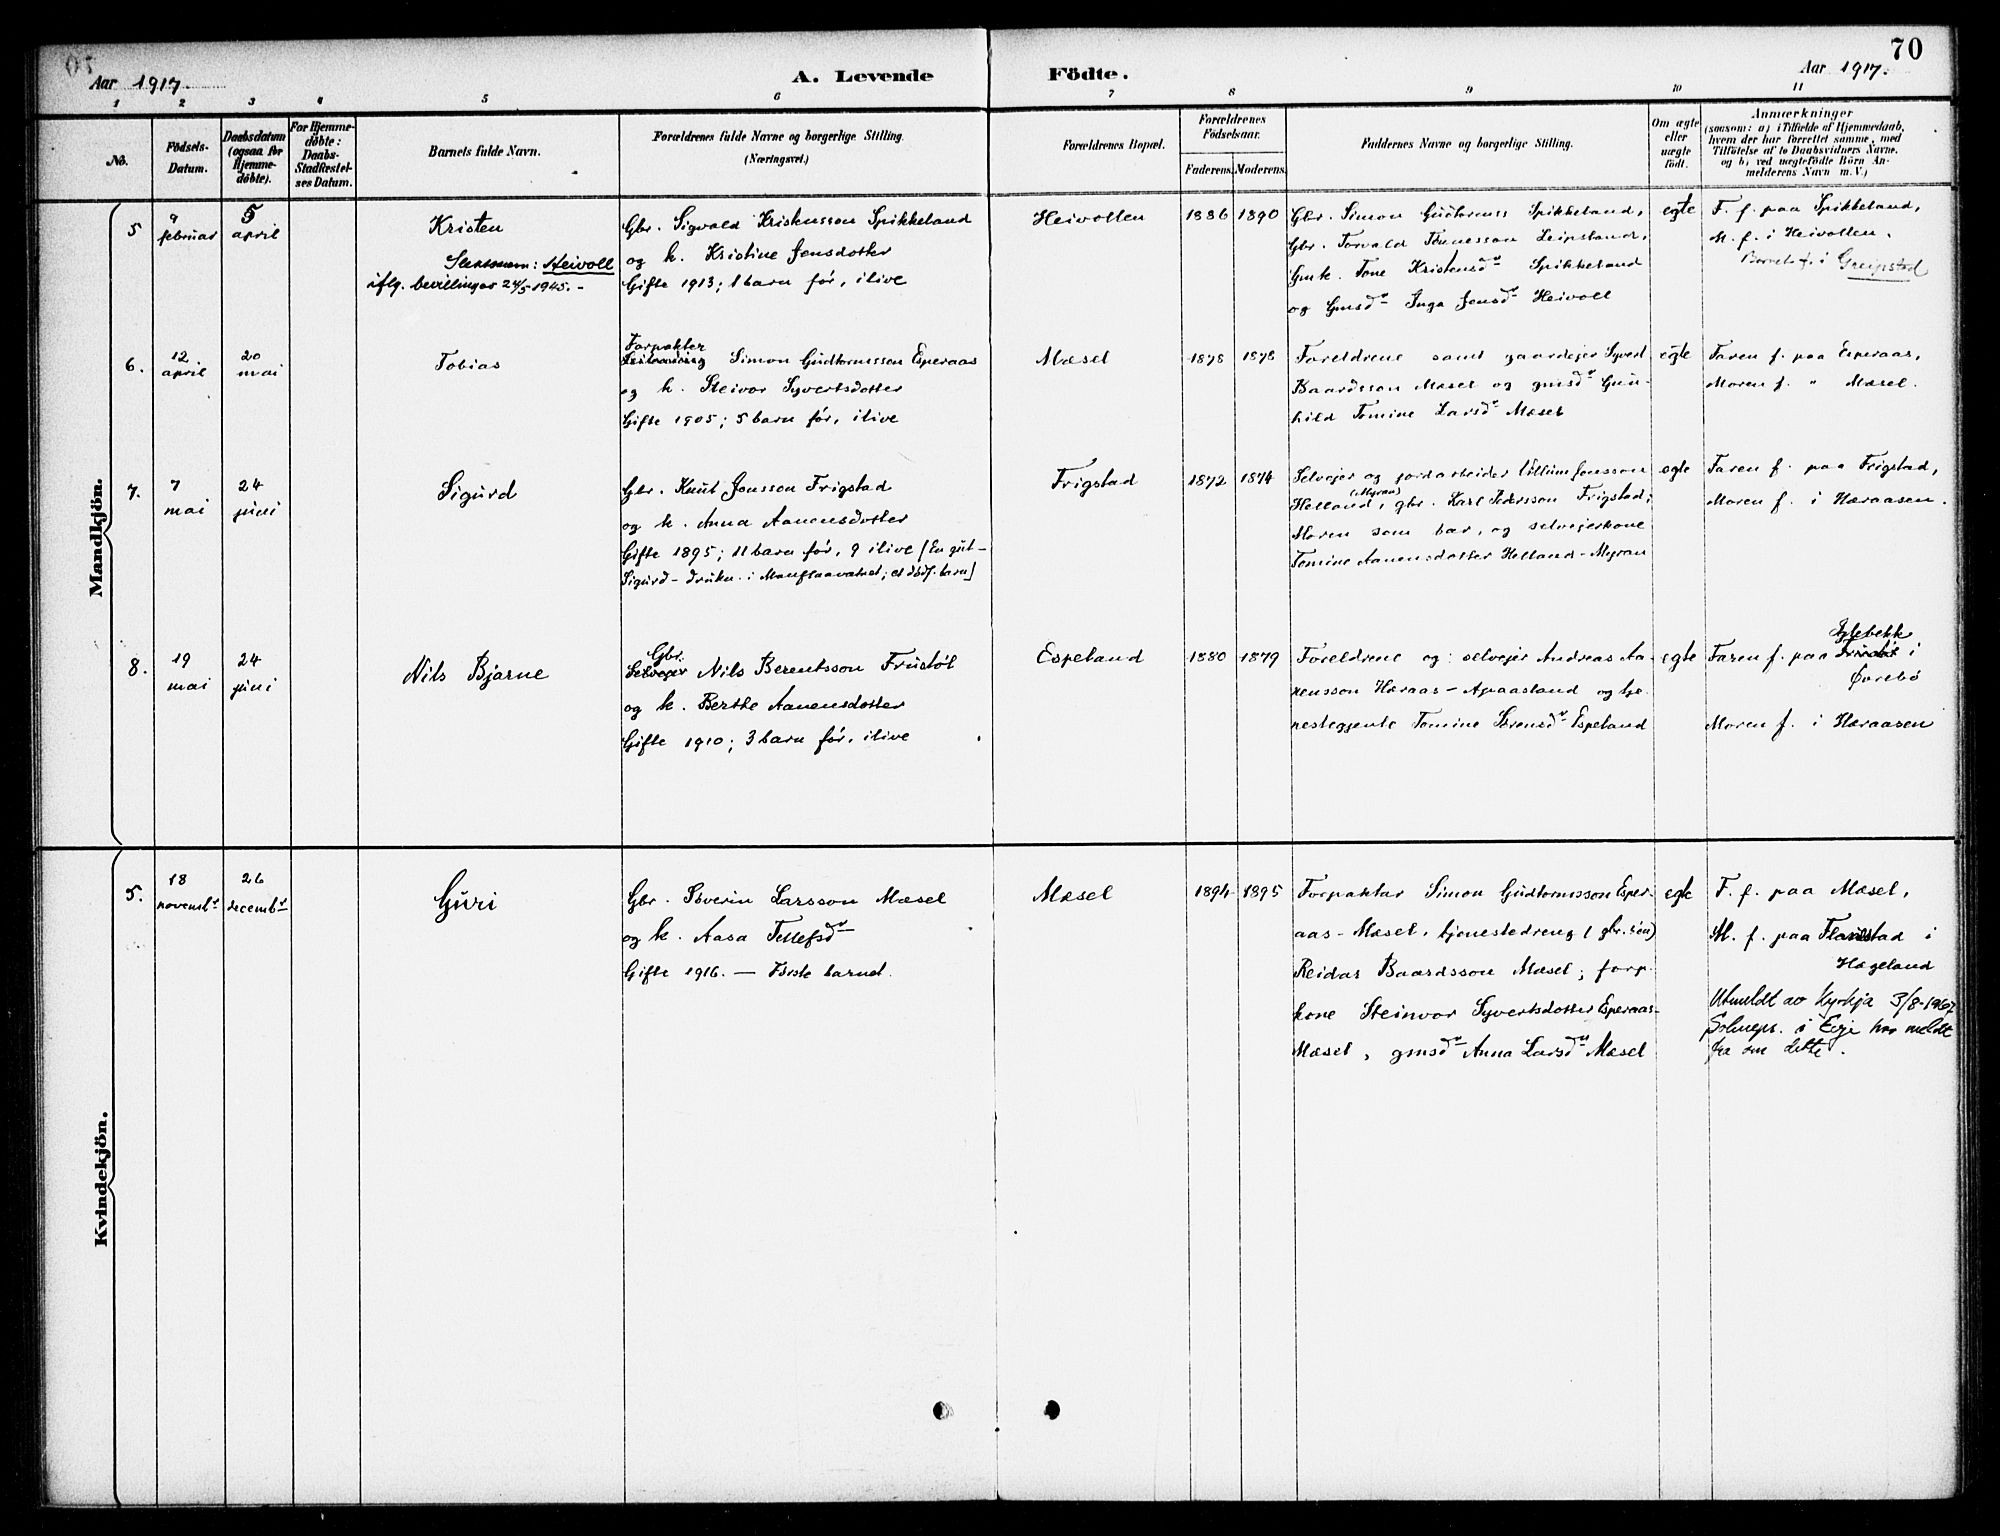 70
Aar 1917.
A. Levende Födte.
Aar 1917.
1 2 3 4 5 6 7 8 9 10 11
No.
Födsels-
Datum.
Daabsdatum
(ogsaa for
Hjemme-
døbte).
For Hjemme-
døbte:
Daabs-
Stadfæstel-
ses Datum.
Barnets fulde Navn.
Forældrenes fulde Navne og borgerlige Stilling.
(Næringsvei.)
Forældrenes Bopæl.
Forældrenes
Födselsaar.
Faderens. Moderens.
Faddernes Navne og borgerlige Stilling.
Om ægte
eller
uægte
født.
Anmærkninger
(saasom: a) i Tilfælde af Hjemmedaab,
hvem der har forrettet samme, med
Tilföielse af to Daabsvidners Navne,
og b) ved uægtefödte Börn An-
melderens Navn m. V.)
Mandkjön.
5
9
februar
5
april
Kristen
Slektsnavn: Heivoll
iflg. bevillingar 24/5 1945. -
Gbr. Sigvald Kristensson Spikkeland
og k. Kristine Jensdotter
Gifte 1913; 1 barn før, ilive
Heivollen
1886 1890
Gbr. Simon Gudtorms Spikkeland,
Gbr. Torvald Tønnesson Leipsland,
Gmk. Tone Kristensdr Spikkeland
og Gmsdr Inga Jensdr Heivoll
egte
F. f. paa Spikkeland,
M. f. i Heivollen.
Barnet f. i Greipstad
6.
12
april
20
mai
Tobias
Forpakter
Simon Gudtormsson Esperaas
og k. Steivor Syvertsdotter
Gifte 1905; 5 barn før, ilive
Mæsel
1878 1878
Foreldrene samt gaardejer Syvert
Baardsson Mæsel og gmsdr Gun-
hild Tomine Larsdr Mæsel
egte
Faren f. paa Esperaas,
Moren f. " Mæsel.
7.
7
mai
24
juni
Sigurd
Gbr. Knut Jensson Frigstad
og k. Anna Aanensdotter
Gifte 1895; 11 barn før, 9 ilive [En gut-
Sigurd - drukn. i Manflaavatnet; et dødf. barn]
Frigstad
1872 1874
Selvejer og jordarbeider Villum Jensson
(Myran)
Holland, gbr. Karl Pedersson Frigstad;
Moren som bar, og selvejerkone
Tomine Aanensdotter Holland-Myran
egte
Faren f. paa Frigstad,
Moren f. i Hæraasen.
8.
19
mai
24
juni
Nils Bjarne
Gbr.
Selvejer Nils Berentsson Frustøl
og k. Berthe Aanensdotter
Gifte 1910; 3 barn før, ilive
Espeland
1880 1879
Foreldrene og: selvejer Andreas Aa-
nensson Hæraas - Apaasland og tje-
nestegjente Tomine Sørensdr Espeland
egte
Iglebekk
Faren f. paa Frustøl i
Øvrebø
Moren f. i Hæraasen
Kvindekjön.
5.
18
novembr
26
decembr
Guri
Gbr. Søverin Larsson Mæsel
og k. Aasa Tellefsdr
Gifte 1916. - Første barnet.
Mæsel
1894 1895
Forpaktar Simon Gudtormsson Esper-
aas - Mæsel, tjenestedreng (gbr. søn)
Reidar Baardsson Mæsel; forp.
kone Steinvor Syvertsdotter Esperaas-
Mæsel, gmsdr Anna Larsdr Mæsel
egte
F. f. paa Mæsel,
M. f. paa i
Hægeland
Utmeldt av Kyrkja 3/8-1967
Soknepr. i Evje har meldt
fra om dette.